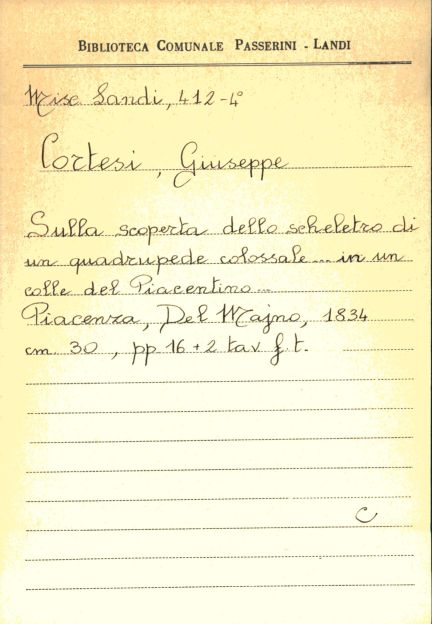 BIBLIOTECA COMUNALE PASSERINI - LANDI
Misc Landi, 412-4°
Cortesi, Giuseppe
Sulla scoperta dello scheletro di
un quadrupede colossale... in un
colle del Piacentino...
Piacenza, Del Majno, 1834
cm 30, pp 16+2 tav f.t.
C